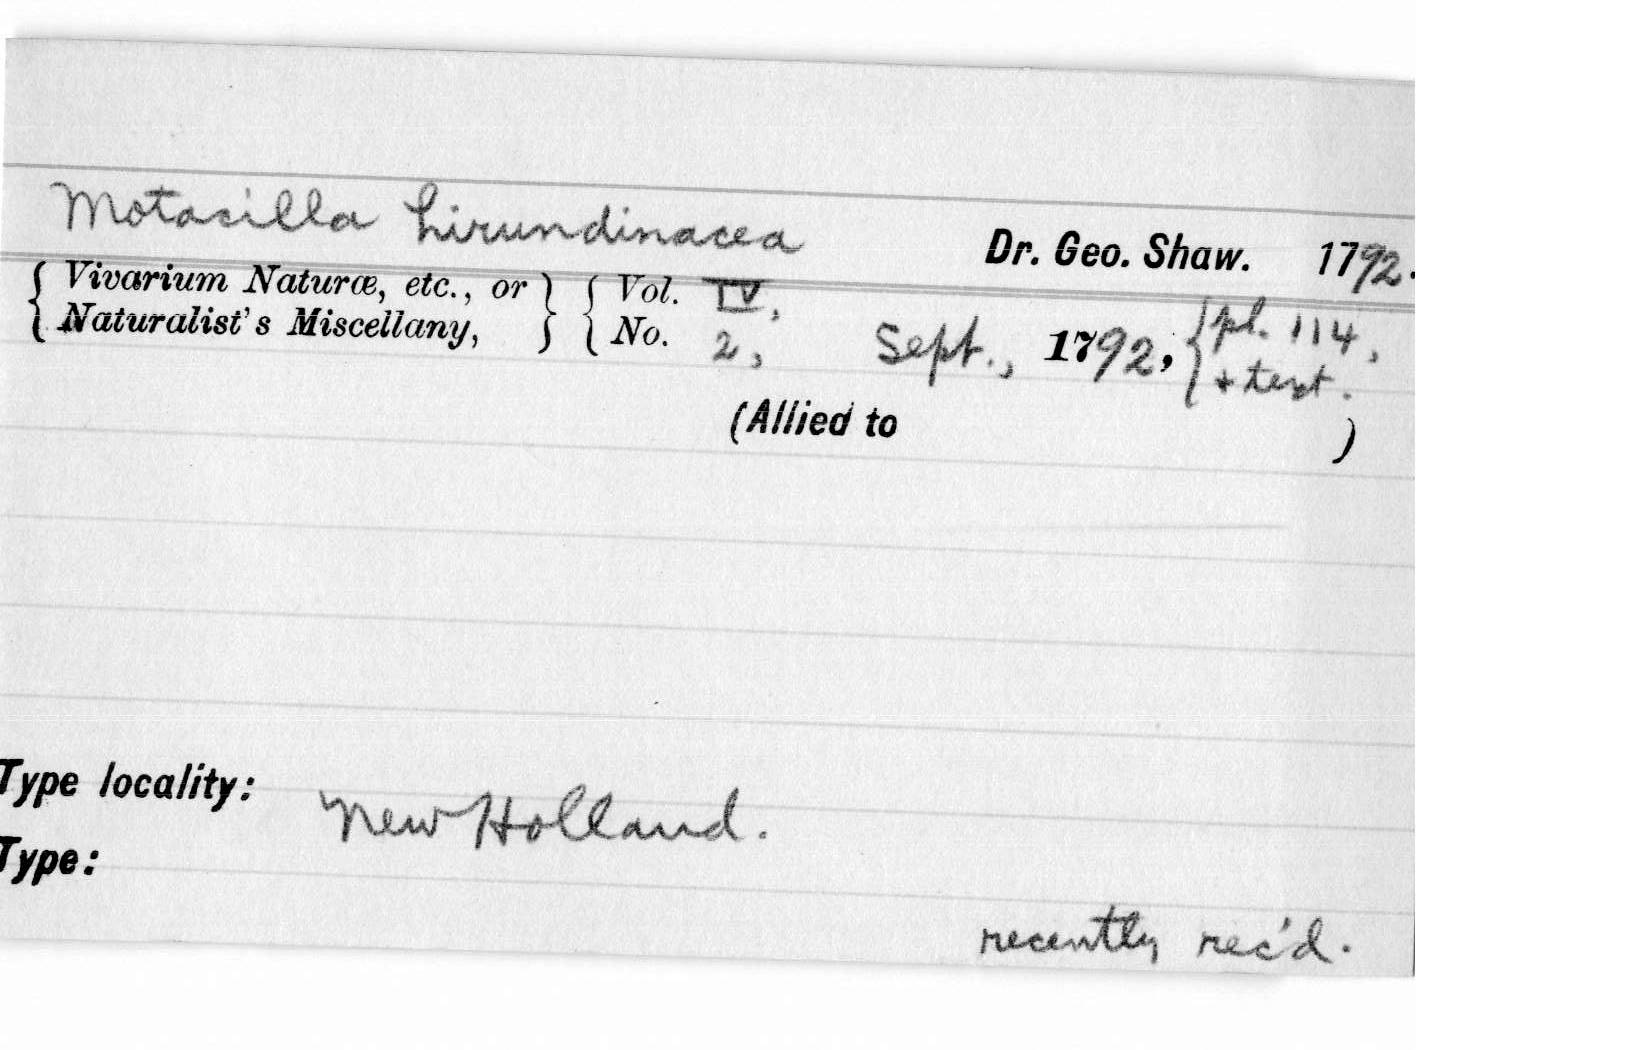 Motacilla hirundinacea Dr. Geo. Shaw. 1792.
{ Vivarium Naturæ, etc., or } { Vol. IV, { pl. 114,
{ Naturalist's Miscellany, } { No. 2, Sept., 1792, { + text.
(Allied to )
Type locality: New Holland.
Type:
recently rec'd.